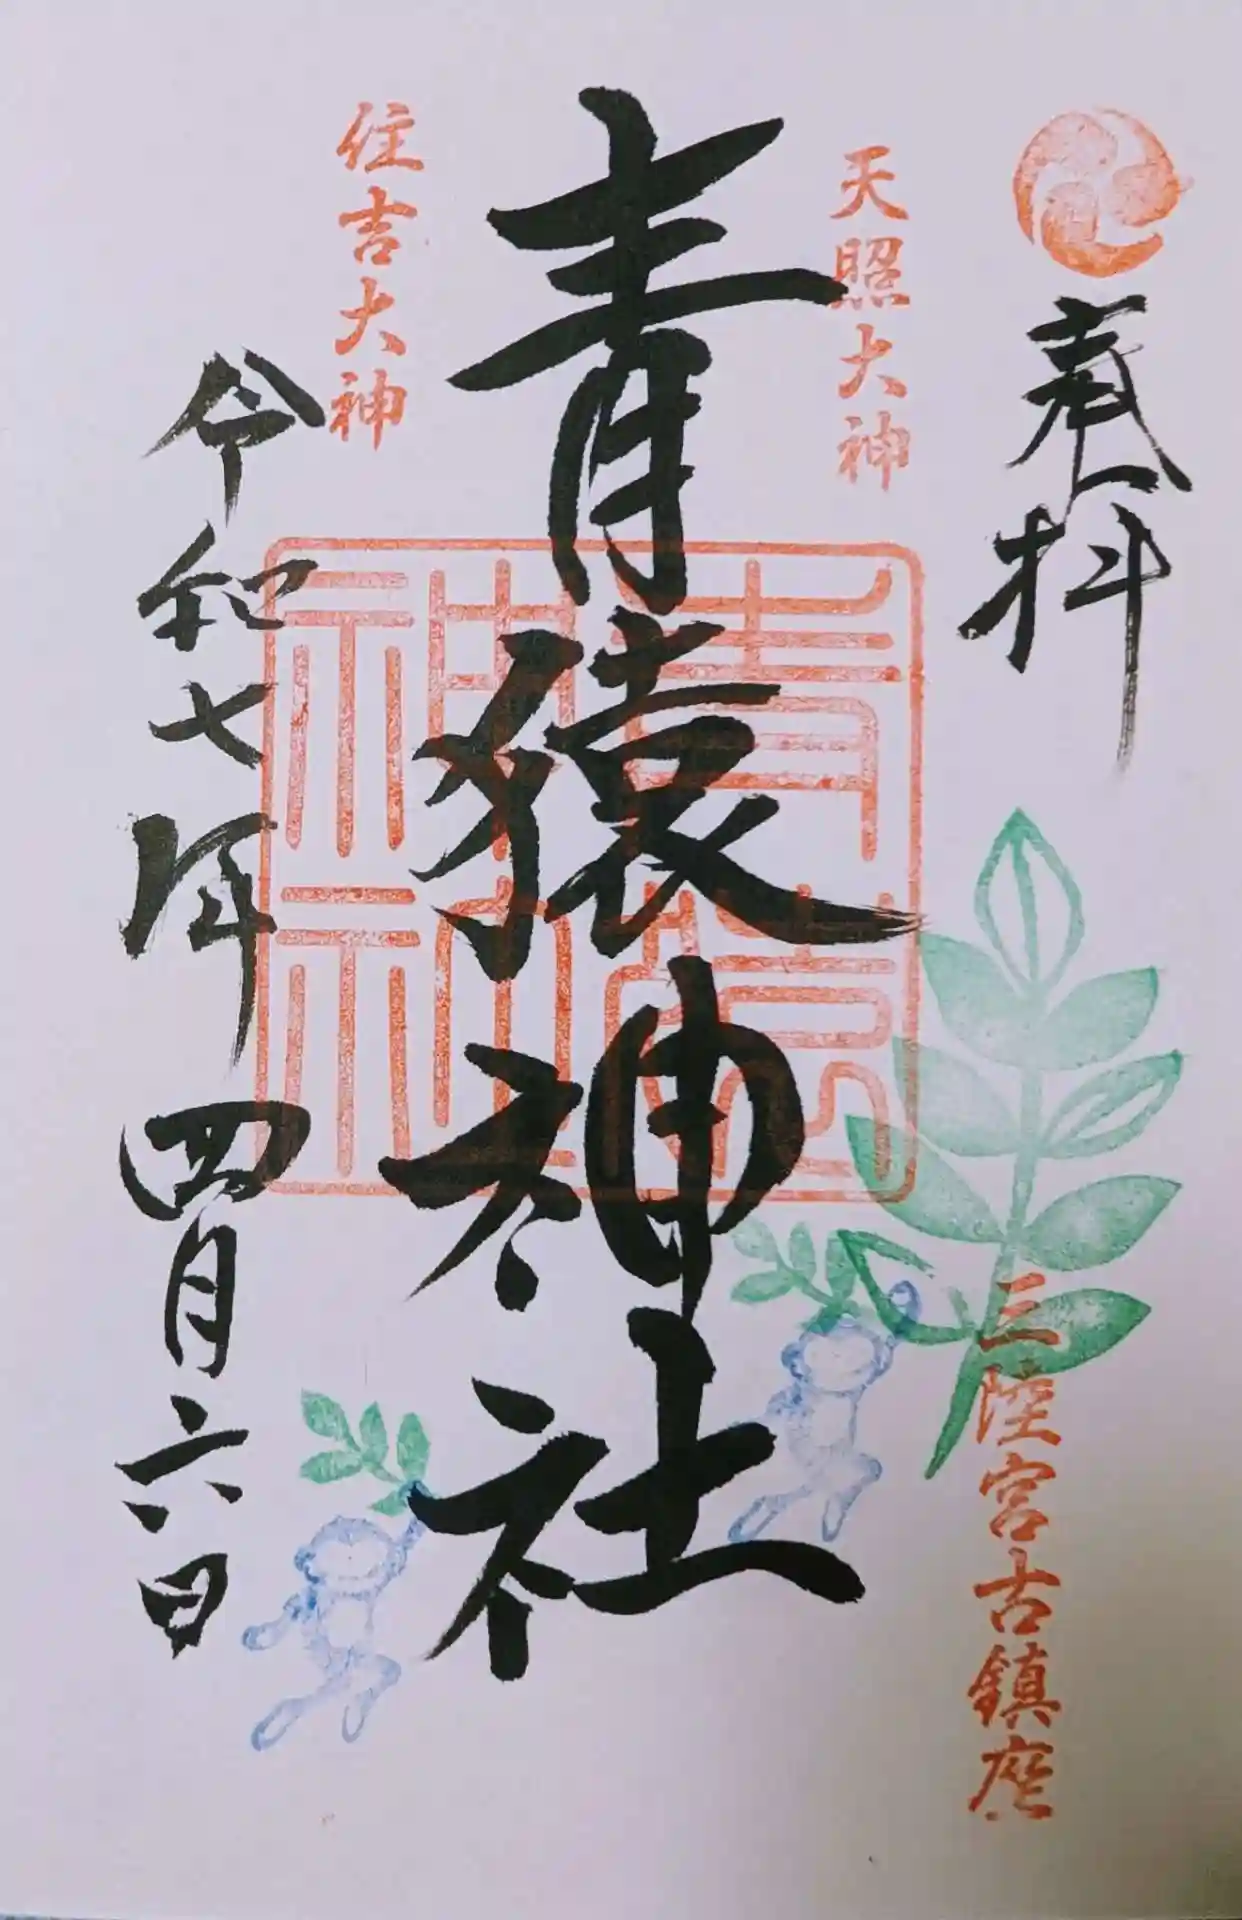 奉拝
三陸宮古鎮座
天照大神
青猿神社
住吉大神
令和七年四月六日
青猿神社